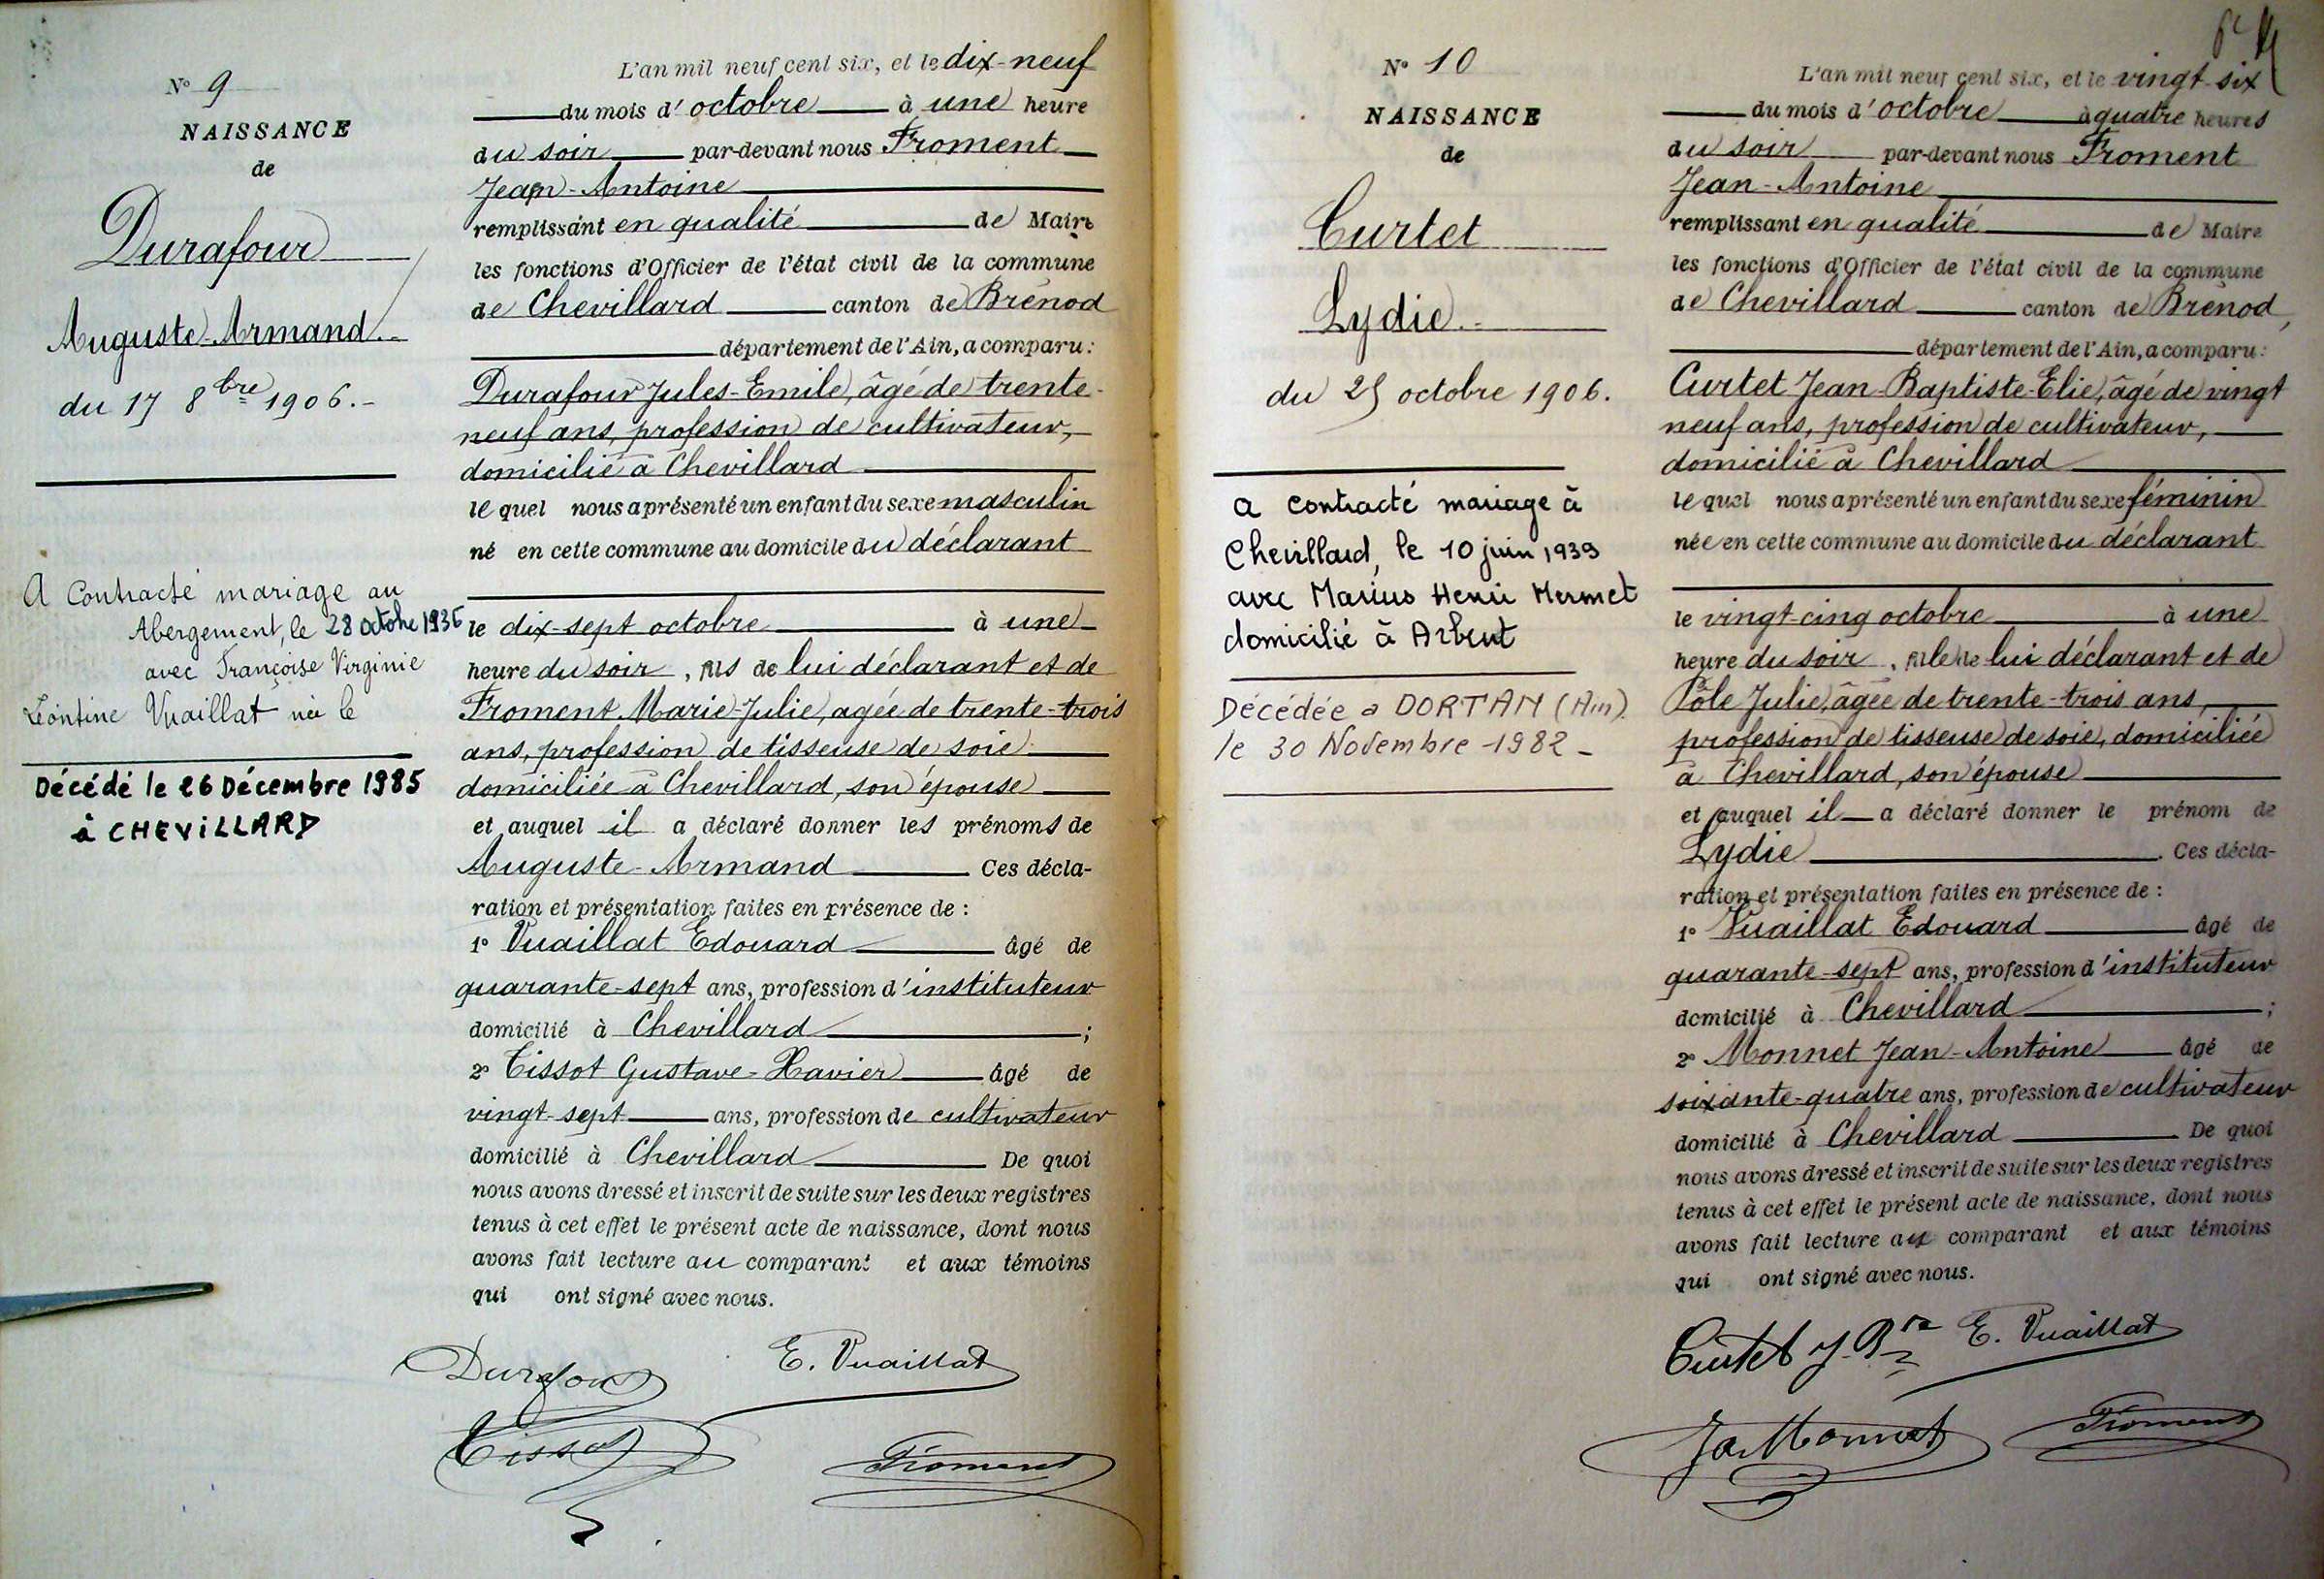 N° 9
NAISSANCE
de
Durafour
Auguste-Armand
du 17 8bre 1906.-
A contracté mariage au
Abergement, le 28 octobre 1936
avec Françoise Virginie
Léontine Vuaillat née le
Décédé le 26 Décembre 1985
à CHEViLLARD
L'an mil neuf cent six, et le dix-neuf
du mois d'octobre à une heure
du soir par-devant nous Froment
Jean-Antoine
remplissant en qualité de Maire
les fonctions d'Officier de l'état civil de la commune
de Chevillard canton de Brénod
département de l'Ain, a comparu:
Durafour Jules-Emile, âgé de trente-
neuf ans, profession de cultivateur,
domicilié à Chevillard
lequel nous a présenté un enfant du sexe masculin
né en cette commune au domicile du déclarant
le dix-sept octobre à une
heure du soir, fils de lui déclarant et de
Froment Marie-Julie, agée de trente-trois
ans, profession de tisseuse de soie
domiciliée à Chevillard, son épouse
et auquel il a déclaré donner les prénoms de
Auguste-Armand Ces décla-
ration et présentation faites en présence de :
1° Vuaillat Edouard âgé de
quarante-sept ans, profession d'instituteur
domicilié à Chevillard ;
2° Tissot Gustave-Xavier âgé de
vingt-sept ans, profession de cultivateur
domicilié à Chevillard De quoi
nous avons dressé et inscrit de suite sur les deux registres
tenus à cet effet le présent acte de naissance, dont nous
avons fait lecture au comparant et aux témoins
qui ont signé avec nous.
Durafour E. Vuaillat
Tissot Froment
N° 10
NAISSANCE
de
Curtet
Lydie
du 25 octobre 1906.
a contracté mariage à
Chevillard, le 10 juin 1939
avec Marius Henri Mermet
domicilié à Arbent
Décédée à DORTAN (Ain)
le 30 Novembre 1982 -
L'an mil neuf cent six, et le vingt-six
du mois d'octobre à quatre heures
du soir par-devant nous Froment
Jean-Antoine
remplissant en qualité de Maire
les fonctions d'Officier de l'état civil de la commune
de Chevillard canton de Brénod,
département de l'Ain, a comparu:
Curtet Jean-Baptiste-Elie, âgé de vingt
neuf ans, profession de cultivateur,
domicilié à Chevillard
lequel nous a présenté un enfant du sexe féminin
née en cette commune au domicile du déclarant
le vingt-cinq octobre à une
heure du soir, fille de lui déclarant et de
Pôle Julie, âgée de trente-trois ans,
profession de tisseuse de soie, domiciliée
à Chevillard, son épouse
et auquel il a déclaré donner le prénom de
Lydie. Ces décla-
ration et présentation faites en présence de :
1° Vuaillat Edouard âgé de
quarante-sept ans, profession d'instituteur
domicilié à Chevillard ;
2° Monnet Jean-Antoine âgé de
soixante-quatre ans, profession de cultivateur
domicilié à Chevillard De quoi
nous avons dressé et inscrit de suite sur les deux registres
tenus à cet effet le présent acte de naissance, dont nous
avons fait lecture au comparant et aux témoins
qui ont signé avec nous.
Curtet J. Bte E. Vuaillat
Ja Monnet Froment